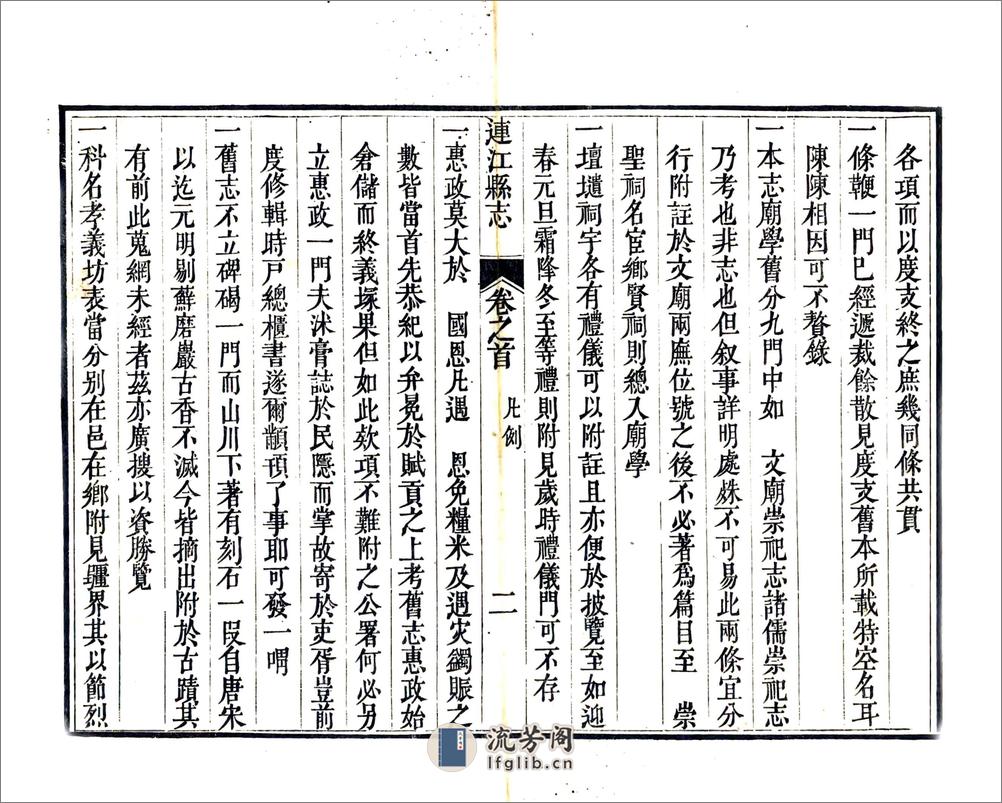 各項而以度支終之庶幾同條共貫
一條鞭一門已經遞裁餘散見度支舊本所載特空名耳
陳陳相因可不贅錄
一本志廟學舊分九門中如　文廟崇祀志諸儒崇祀志
乃考也非志也但叙事詳明處姝不可易此兩條宜分
行附註於文廟兩廡位號之後不必著爲篇目至　崇
聖祠名宦鄉賢祠則總入廟學
一壇壝祠宇各有禮儀可以附註且亦便於披覽至如迎
春元旦霜降冬至等禮則附見歲時禮儀門可不存
連江縣志　卷之首　凡例　二
一惠政莫大於　國恩凡遇　恩免糧米及遇灾蠲賑之
數皆當首先恭紀以弁冕於賦貢之上考舊志惠政始
倉儲而終義塚果但如此欵項不難附之公署何必另
立惠政一門夫沭膏誌於民隱而掌故寄於吏胥豈前
度修輯時戸總櫃書遂爾顢頇了事耶可發一喟
一舊志不立碑碣一門而山川下著有刻石一叚自唐宋
以迄元明剔蘚磨巖古香不滅今皆摘出附於古蹟其
有前此蒐網未經者茲亦廣搜以資勝覽
一科名孝義坊表當分别在邑在鄉附見疆界其以節烈
流芳阁
lfglib.cn